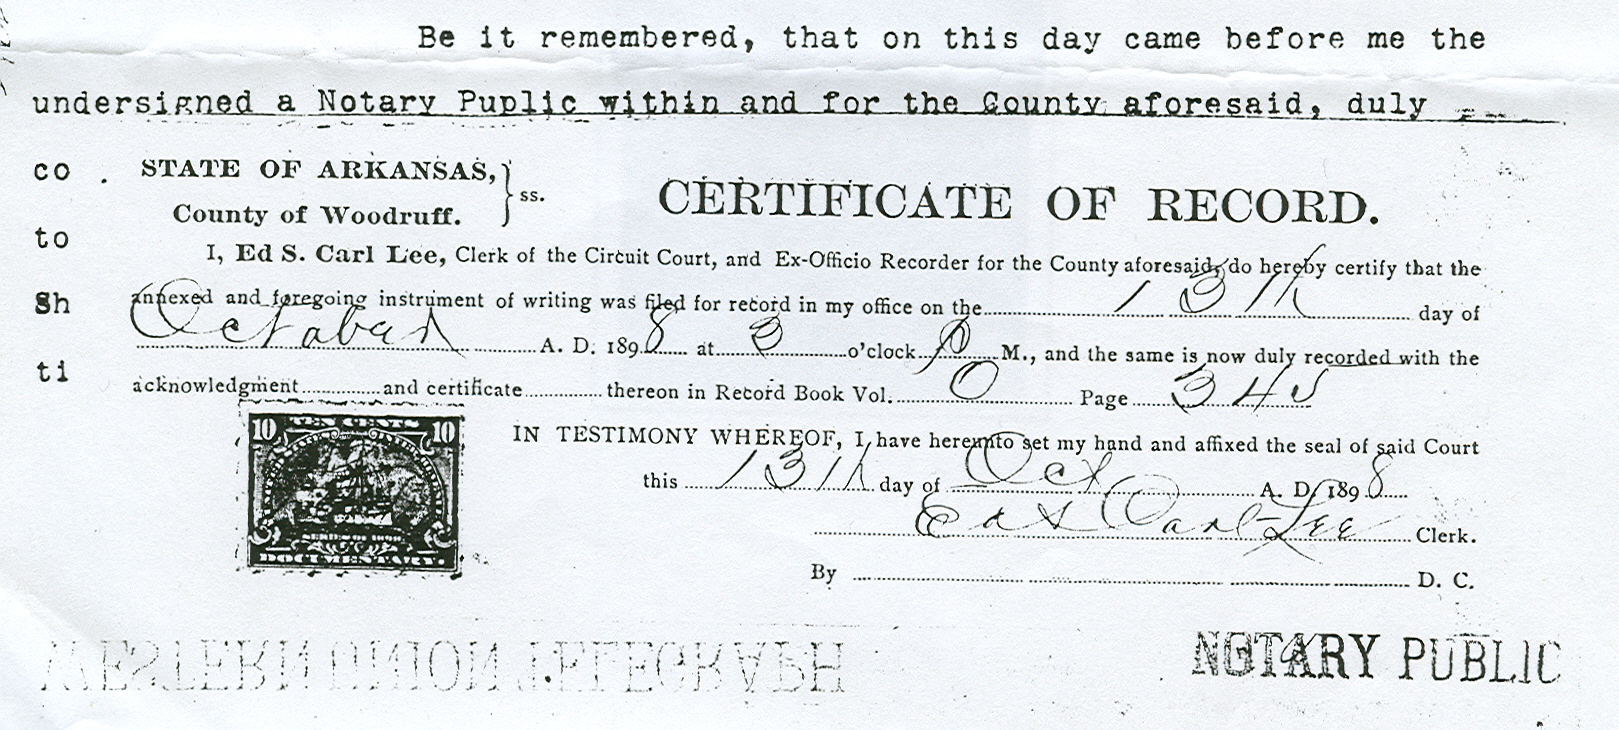 Be it remembered, that on this day came before me the
undersigned a Notary Puplic within and for the County aforesaid, duly
co . STATE OF ARKANSAS, } ss. CERTIFICATE OF RECORD.
County of Woodruff.
to
I, Ed S. Carl Lee, Clerk of the Circuit Court, and Ex-Officio Recorder for the County aforesaid, do hereby certify that the
Sh annexed and foregoing instrument of writing was filed for record in my office on the 13th day of
October A. D. 1898 at 3 o'clock P M., and the same is now duly recorded with the
ti
acknowledgment and certificate thereon in Record Book Vol. O Page 345
10 TEN CENTS 10
IN TESTIMONY WHEREOF, I have hereunto set my hand and affixed the seal of said Court
this 13th day of Oct A. D. 1898
SERIES OF 1898
Ed S Carl-Lee Clerk.
DOCUMENTARY.
By D. C.
WESTERN UNION TELEGRAPH
NOTARY PUBLIC